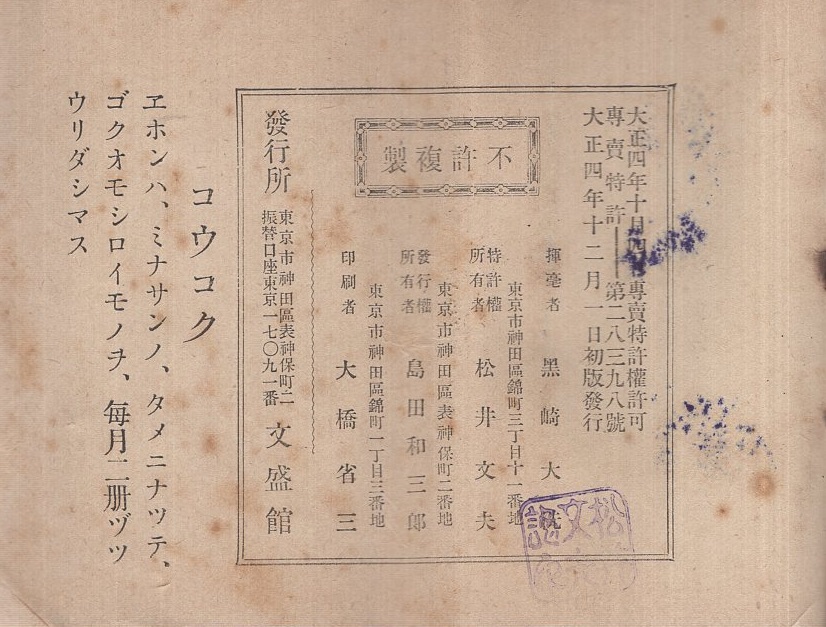 大正四年十月四日專賣特許權許可
專賣特許——第二八三九八號
大正四年十二月一日初版發行
不許複製
揮毫者 黑崎大
東京市神田區錦町三丁目十一番地
特許權所有者 松井文夫
東京市神田區表神保町二番地
發行權所有者 島田和三郎
東京市神田區錦町一丁目三番地
印刷者 大橋省三
發行所
東京市神田區表神保町二
振替口座東京一七〇九一番
文盛館
コウコク
ヱホンハ、ミナサンノ、タメニナツテ、
ゴクオモシロイモノヲ、每月二册ヅツ
ウリダシマス